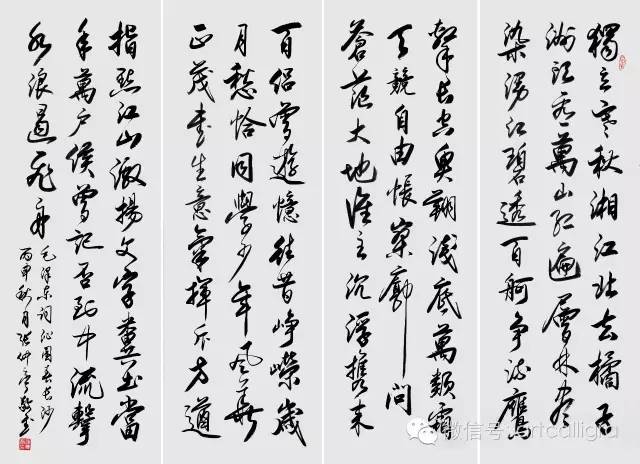 獨立寒秋湘江北去橘子
洲頭看萬山红遍層林盡
染漫江碧透百舸争流鷹
擊长空魚翔淺底萬類霜
天競自由悵寥廓问
蒼茫大地谁主沉浮攜来
百侣曾遊憶往昔崢嶸歲
月愁恰同學少年风華
正茂書生意氣揮斥方遒
指點江山激揚文字糞土當
年萬户侯曾記否到中流擊
水浪遏飛舟
毛泽东词沁园春长沙
丙申秋月張仲亭敬书
微信号: artcalligra